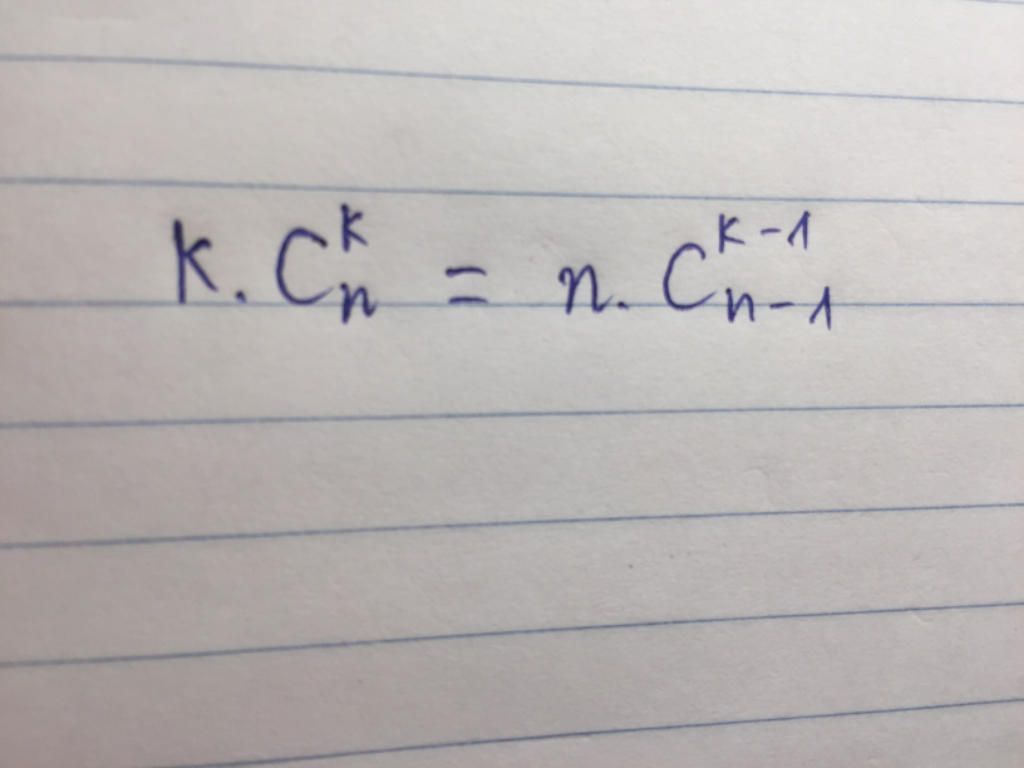 k. C_n^k = n. C_{n-1}^{k-1}